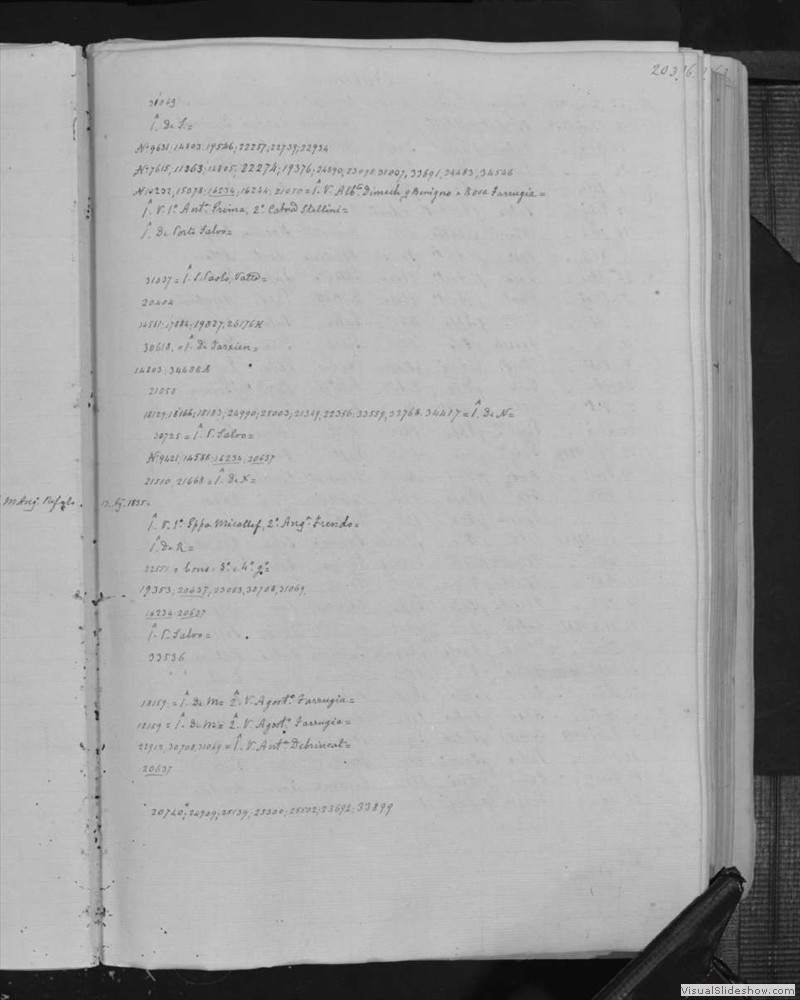 203
31063
1. De S.=
No 9631; 14803; 19546; 22257; 22739; 22934
No 7615, 11363; 14805; 22274; 19376; 24890; 23098; 31007, 33691, 34483, 34546
15078; 16234, 16244; 21050 = 1. V. Alb. Dimech q Benigno e Rosa Farrugia =
1. V. 1º Ant. Prima, 2º Stellini =
1. De Porto Salvo =
31037 = 1. S. Paolo,
20404
14581; 19827; 26176
30618, = 1. De Tarxien =
14803; 34488
21050
18129; 18166; 18183; 24990; 25003; 21349, 22356; 33559, 32768. 34417 = 1. De N =
30725 = 1. P. Salvo =
No 9421; 14588; 16234; 20637
21510, 21668 = 1. De X =
M Ang. Refalo. 13 1835 =
1. V. 1º Gppa Micallef, 2º Ang. Trendo =
1. De R =
22555 e 3º e 4º
19353, 20637; 23053, 30708, 31069,
16234. 20637
1. P. Salvo =
33536
18159; = 1. De M = 2. V. Agost. Farrugia =
18159 = 1. De M = 2. V. Agost. Farrugia =
22912, 30708, 31069 = 1. V. Ant. Debrincat =
20637
20740; 24909; 25139; 25300; 25502; 23692; 33899
VisualSlideshow.com